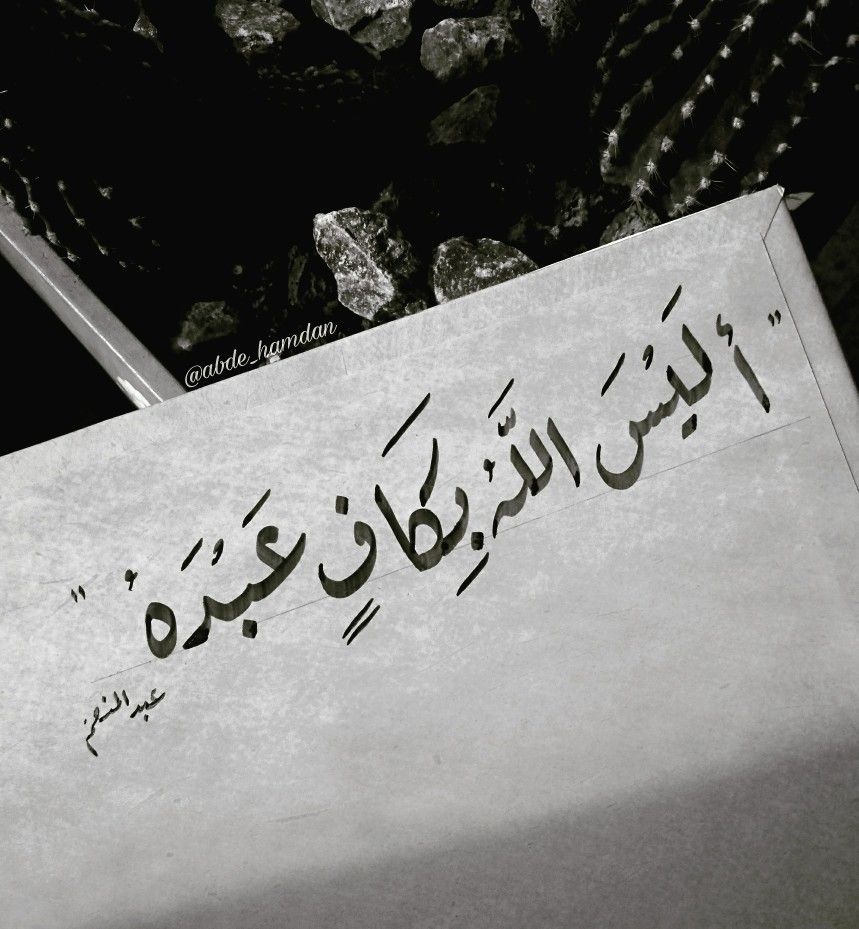 @abde_hamdan
"أَلَيْسَ اللَّهُ بِكَافٍ عَبْدَهُ"
عبد المنعم